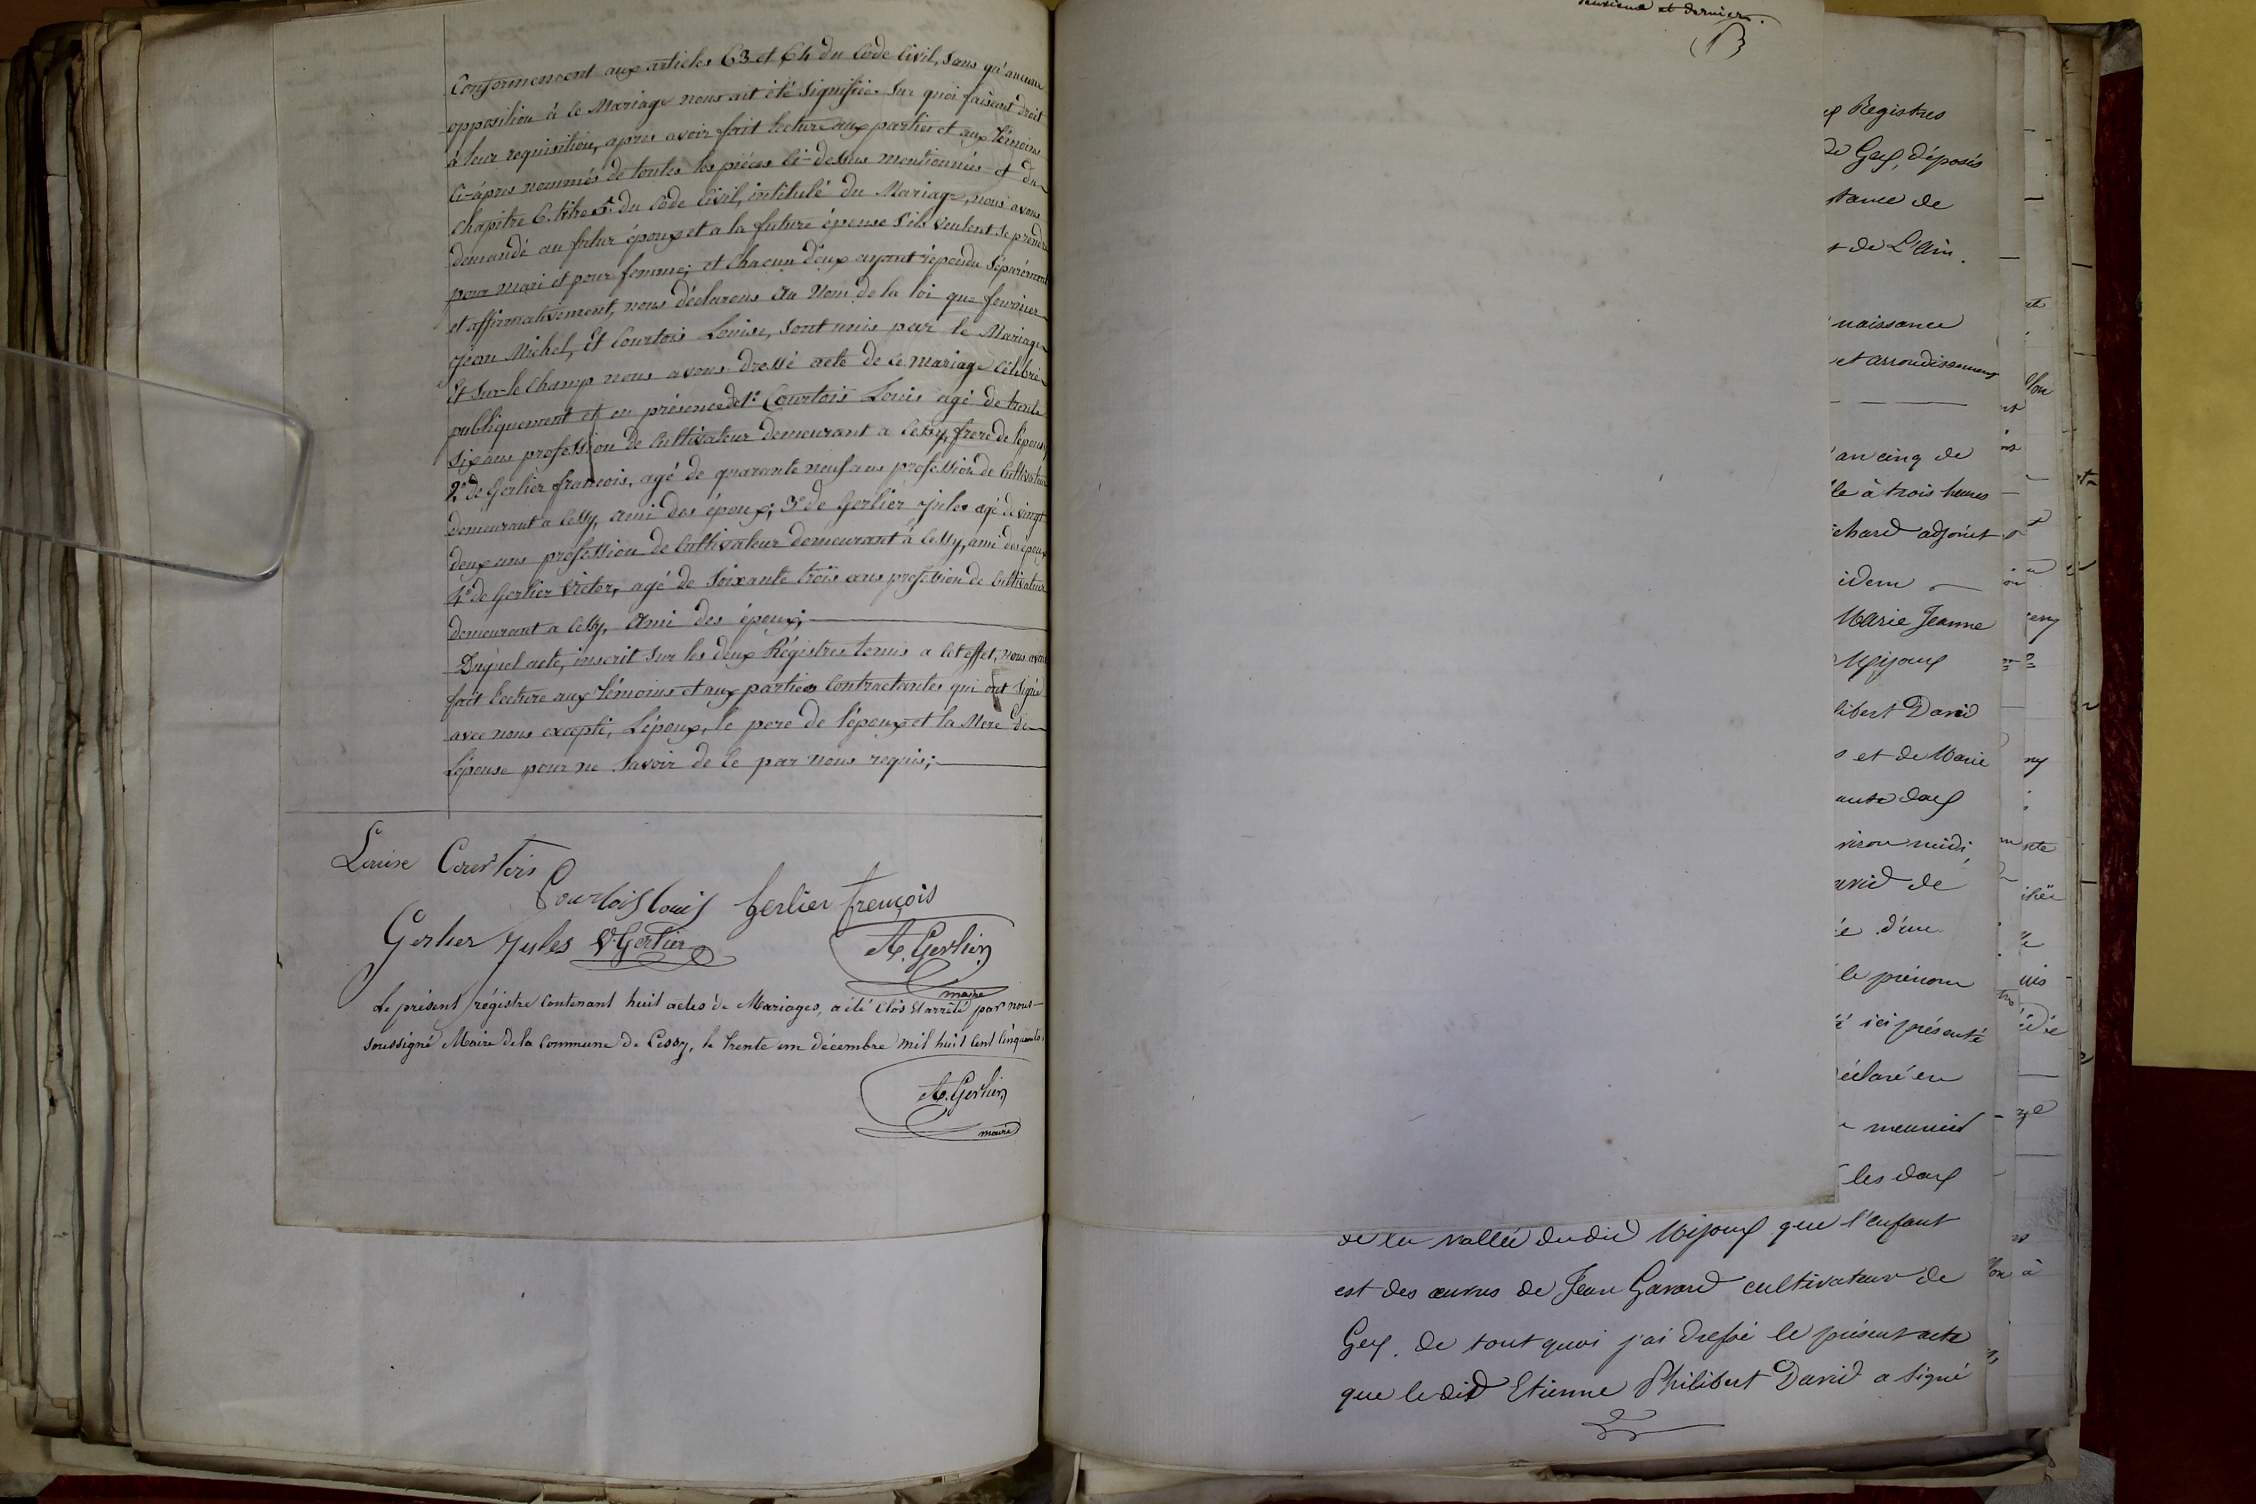 Conformement aux articles 63 et 64 du Code Civil, Sans qu'aucune
opposition à ce Mariage nous ait été Signifiée. Sur quoi faisant droit
à leur requisition, après avoir fait lecture aux parties et aux témoins
ci-après nommés de toutes les pièces ci-dessus mentionnées et du
Chapitre 6. titre 5. du Code Civil, intitulé du Mariage, nous avons
demandé au futur époux et a la future épouse s'ils veulent se prendre
pour mari et pour femme; et chacun d'eux ayant répondu Séparément
et affirmativement, nous déclarons au Nom de la loi que fournier
Jean Michel, Et Courtois Louise, sont unis par le Mariage
Et Sur-le Champ nous avons dressé acte de ce mariage célébré
publiquement et en présence de 1º Courtois Louis agé de trente
six ans profession de Cultivateur demeurant a Cessy, frere de l'épouse
2º de Gerlier francois, agé de quarante neuf ans profession de Cultivateur
demeurant a Cessy, ami des époux; 3º de Gerlier Jules agé de vingt
deux ans profession de Cultivateur demeurant à Cessy, ami des époux
4º de Gerlier Victor, agé de Soixante trois ans profession de Cultivateur
demeurant a Cessy, Ami des époux;
Duquel acte, inscrit Sur les deux Régistres tenus a cet effet, nous avons
fait lecture aux témoins et aux parties Contractantes qui ont Signé
avec nous excepté, L'époux, le pere de l'époux et la Mere de
L'épouse pour ne Savoir de ce par nous requis;
Louise Courtois
Courtois Louis Gerlier françois
Gerlier Jules V. Gerlier A. Gerlier
maire
Le présent régistre Contenant huit actes de Mariages, a été Clos Et arrêté par nous
soussigné Maire de la Commune de Cessy, le trente un décembre mil huit cent Cinquante.
A. Gerlier
maire
et dernier.
Registres
de Gex, déposés
de
de L'Ain.
naissance
et arrondissement
an cinq de
à trois heures
adjoint
idem
Marie Jeanne
Mijoux
David
et de Marie
midi
de
d'une
le prénom
ici présenté
déclaré en
meunier
les deux
de la vallée dudit Mijoux que l'enfant
est des œuvres de Jean Gavard cultivateur de
Gex. de tout quoi j'ai dressé le présent acte
que le dit Etienne Philibert David a signé